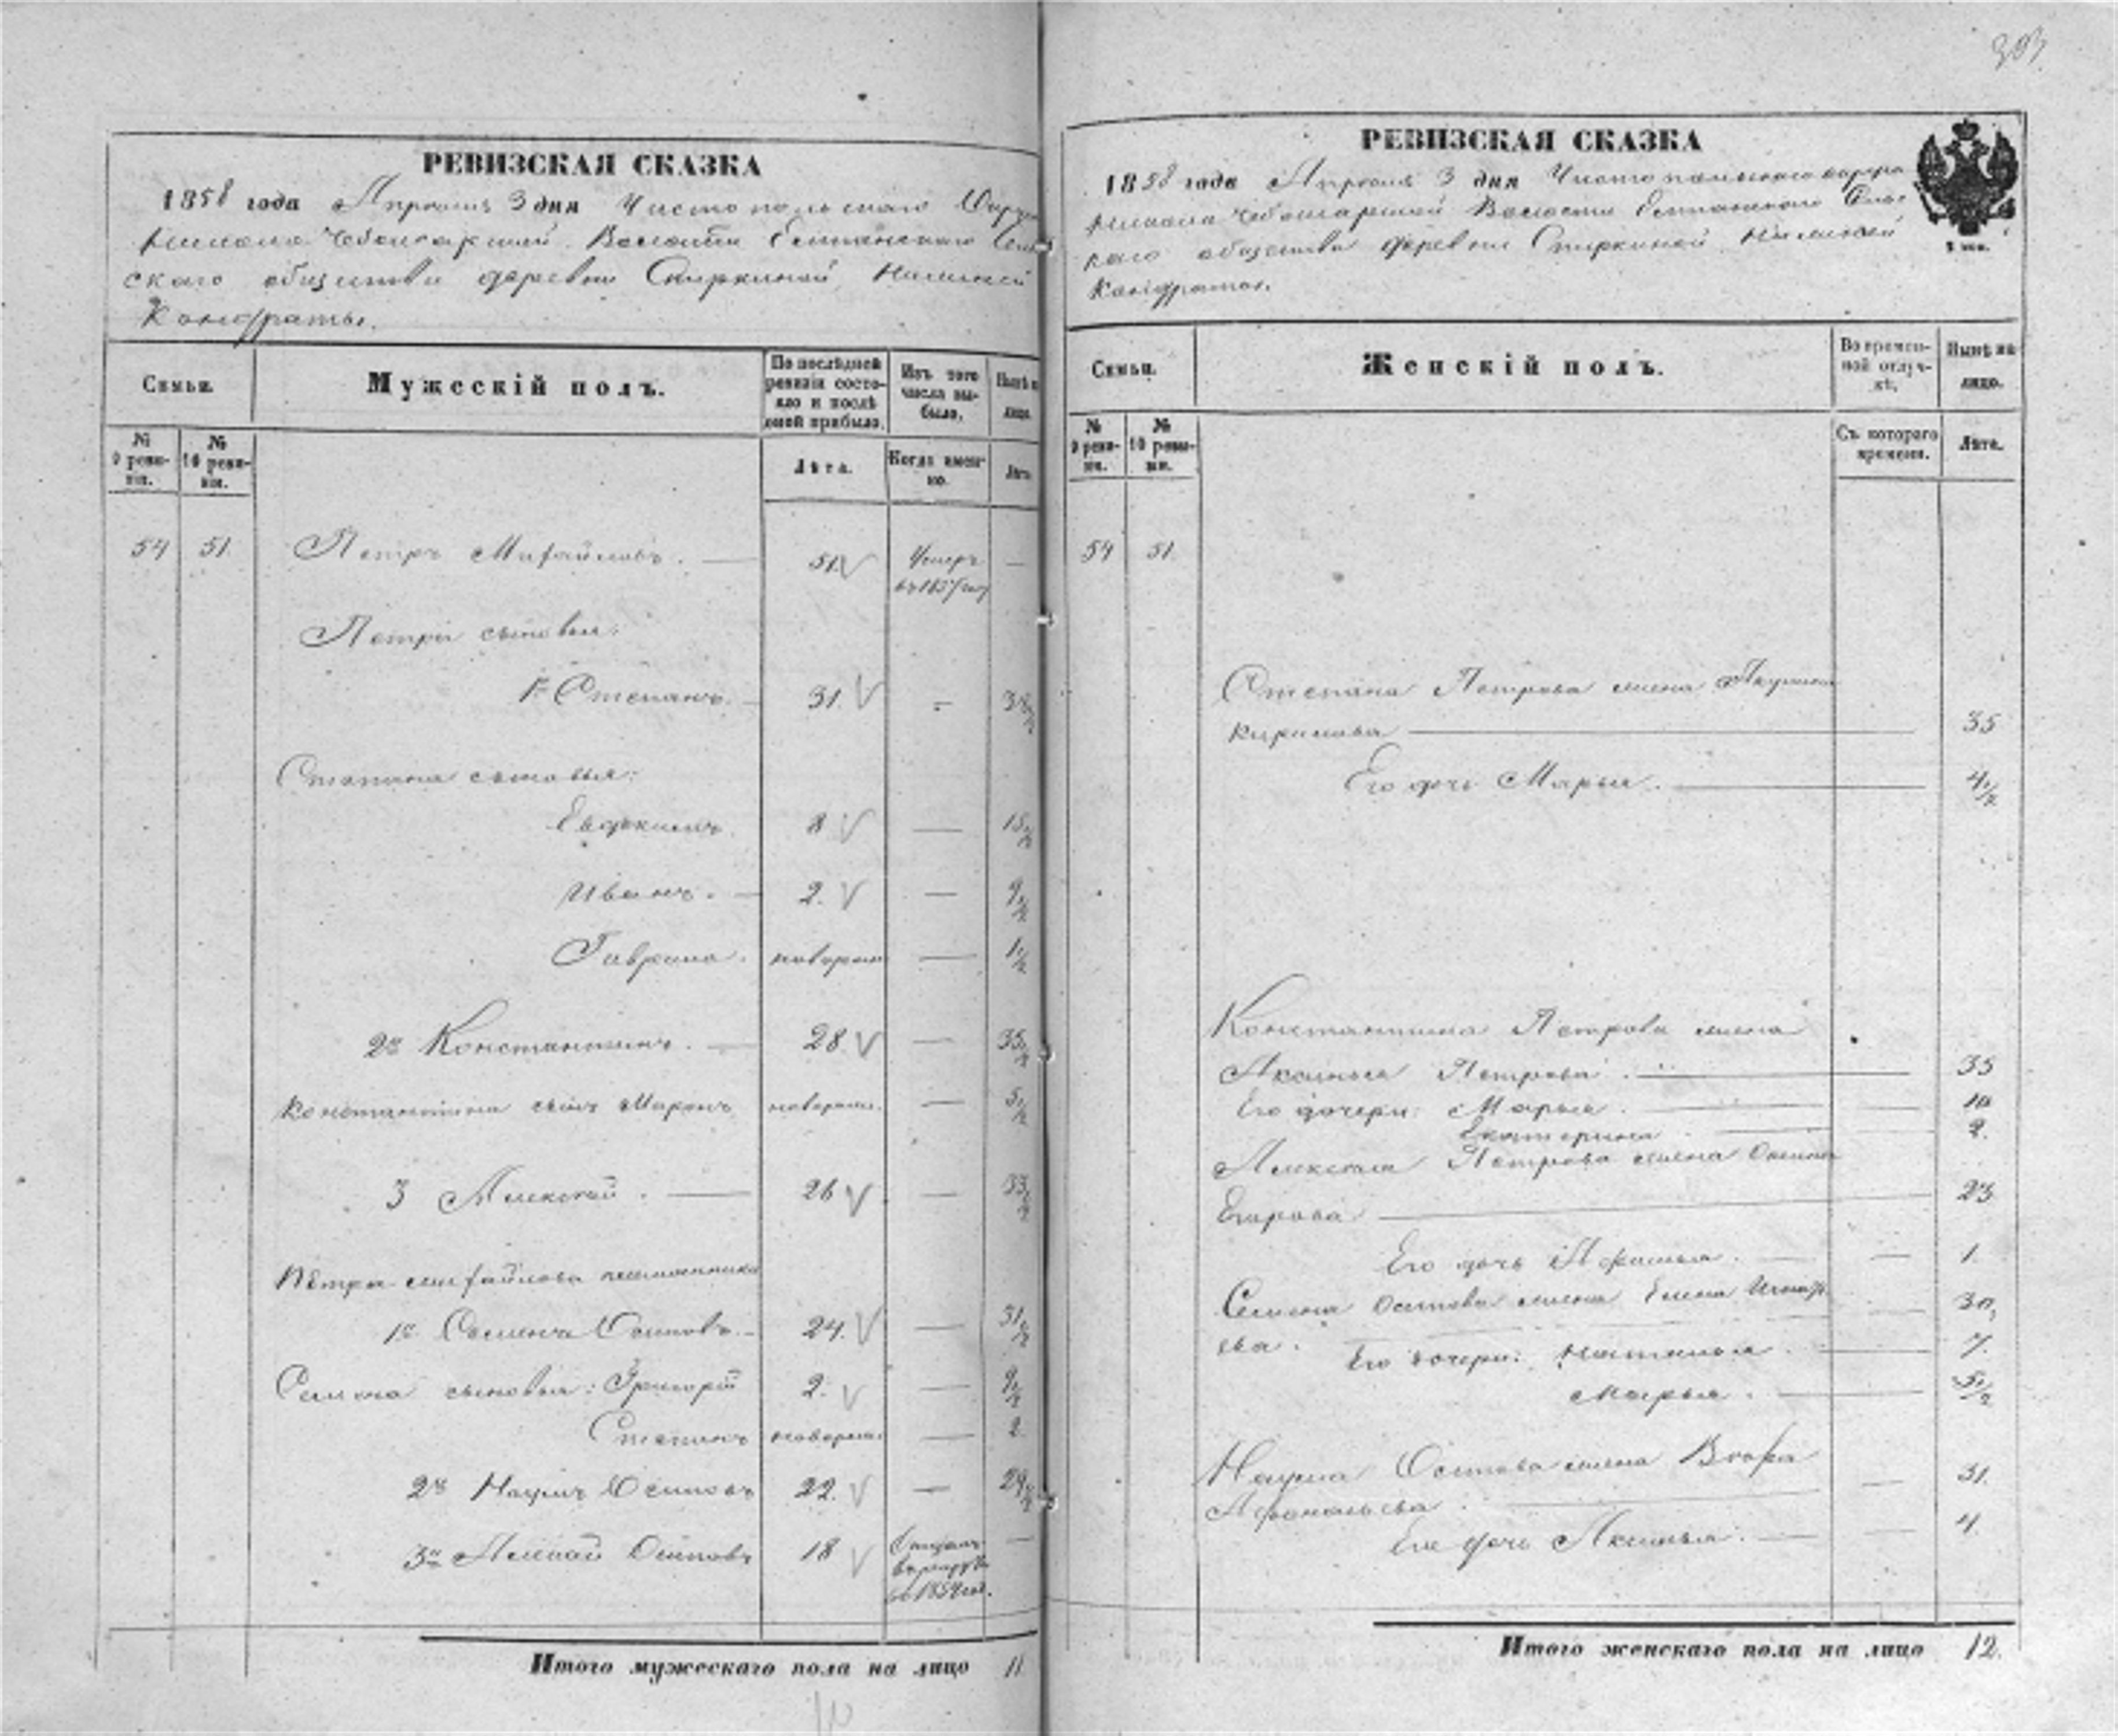 303
РЕВИЗСКАЯ СКАЗКА
1858 года Апреля 3 дня Чистопольского Округа
Чебоксарской Волости Сель
скаго общества деревни Спиркиной
Кондраты.
Семьи.
Мужескій полъ.
По послѣдней ревизіи состояло и послѣ оной прибыло.
Изъ того числа выбыло.
Нынѣ на лицо.
№ 9 ревизіи.
№ 10 ревизіи.
Лѣта.
Когда именно.
Лѣта.
54 51. Петръ Михайловъ. — 51. Умеръ —
въ 1857 году
Петра сыновья:
1й Степанъ. 31. 38½
Степана сыновья:
Евдокимъ. 8 — 15½
Иванъ. — 2. — 9½
Гаврила. новорож — 1½
2й Константинъ. — 28. — 35½
Константина сынъ Миронъ новорож. — 5½
3 Алексей. — 26 — 33½
Петра Михайлова племянники
1й Семенъ Осиповъ. 24. — 31½
Семена сыновья: Григорій 2. — 9½
Степанъ новорож. — 2
2й Наумъ Осиповъ 22. — 29½
3й Осиповъ 18 —
въ рекруты
въ 1854 год.
Итого мужескаго пола на лицо 11
РЕВИЗСКАЯ СКАЗКА
1858 года Апреля 3 дня Чистопольскаго округа
Чебоксарской Волости Сель
скаго общества деревни Спиркиной
Кондраты.
Семьи.
Женскій полъ.
Во временной отлучкѣ.
Нынѣ на лицо.
№ 9 ревизіи.
№ 10 ревизіи.
Съ котораго времени.
Лѣта.
54 51.
Степана Петрова жена Акулина
Кирилова — 35
Его дочь Марья. — 4½
Константина Петрова жена
Аксинья Петрова. — 35
Его дочери: Марья. — 10
Екатерина — 2.
Алексея Петрова жена
Егорова — 23
Его дочь Афимья. — 1.
Семена Осипова жена Елена Игнать
ева. 30,
Его дочери: Наталья. — 7.
Марья. — 5½
Наума Осипова жена — 31.
Афанасьева.
Его дочь Аксинья. — 4.
Итого женскаго пола на лицо 12.